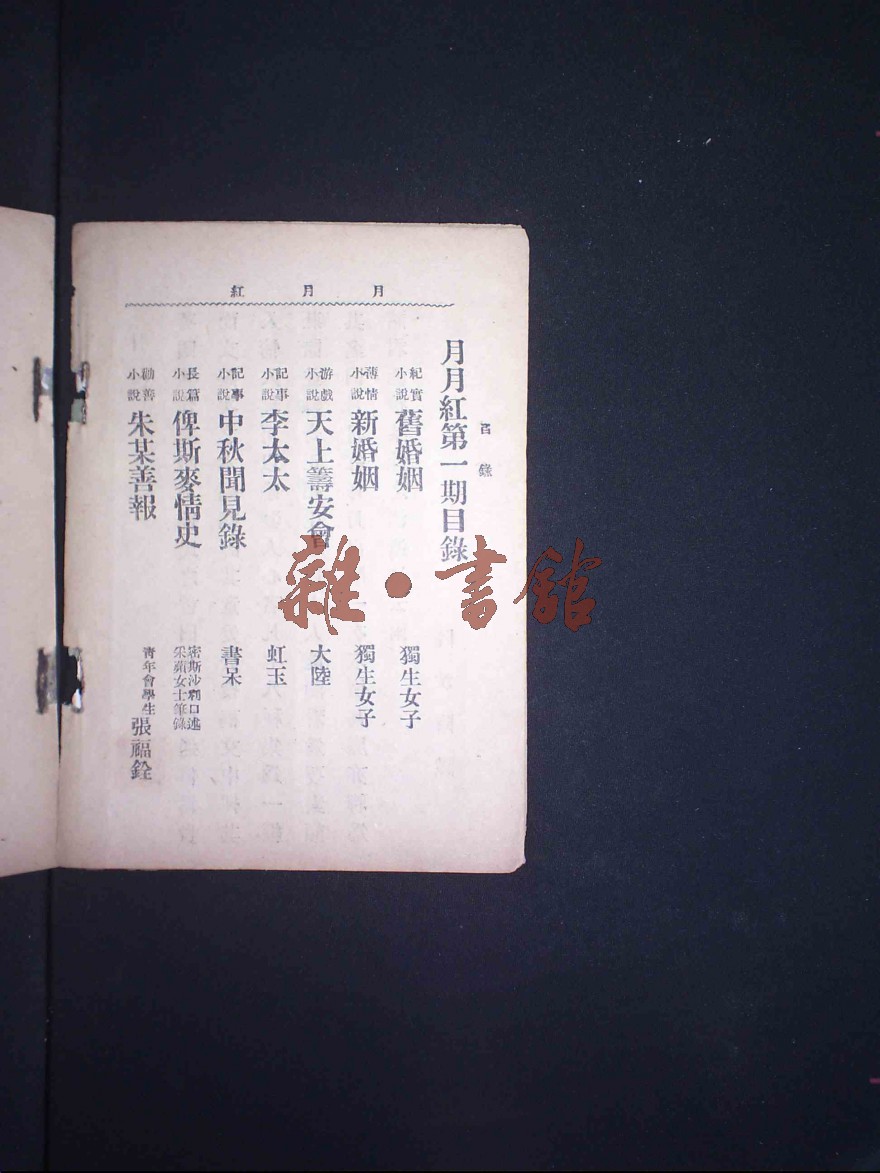 月月紅
目錄
月月紅第一期目錄
紀實小說 舊婚姻 獨生女子
薄情小說 新婚姻 獨生女子
游戲小說 天上籌安會 大陸
記事小說 李太太 虹玉
記事小說 中秋聞見錄 書呆
長篇小說 俾斯麥情史 密斯沙利口述 采蘋女士筆錄
勸善小說 朱某善報 青年會學生 張福銓
雜·書館